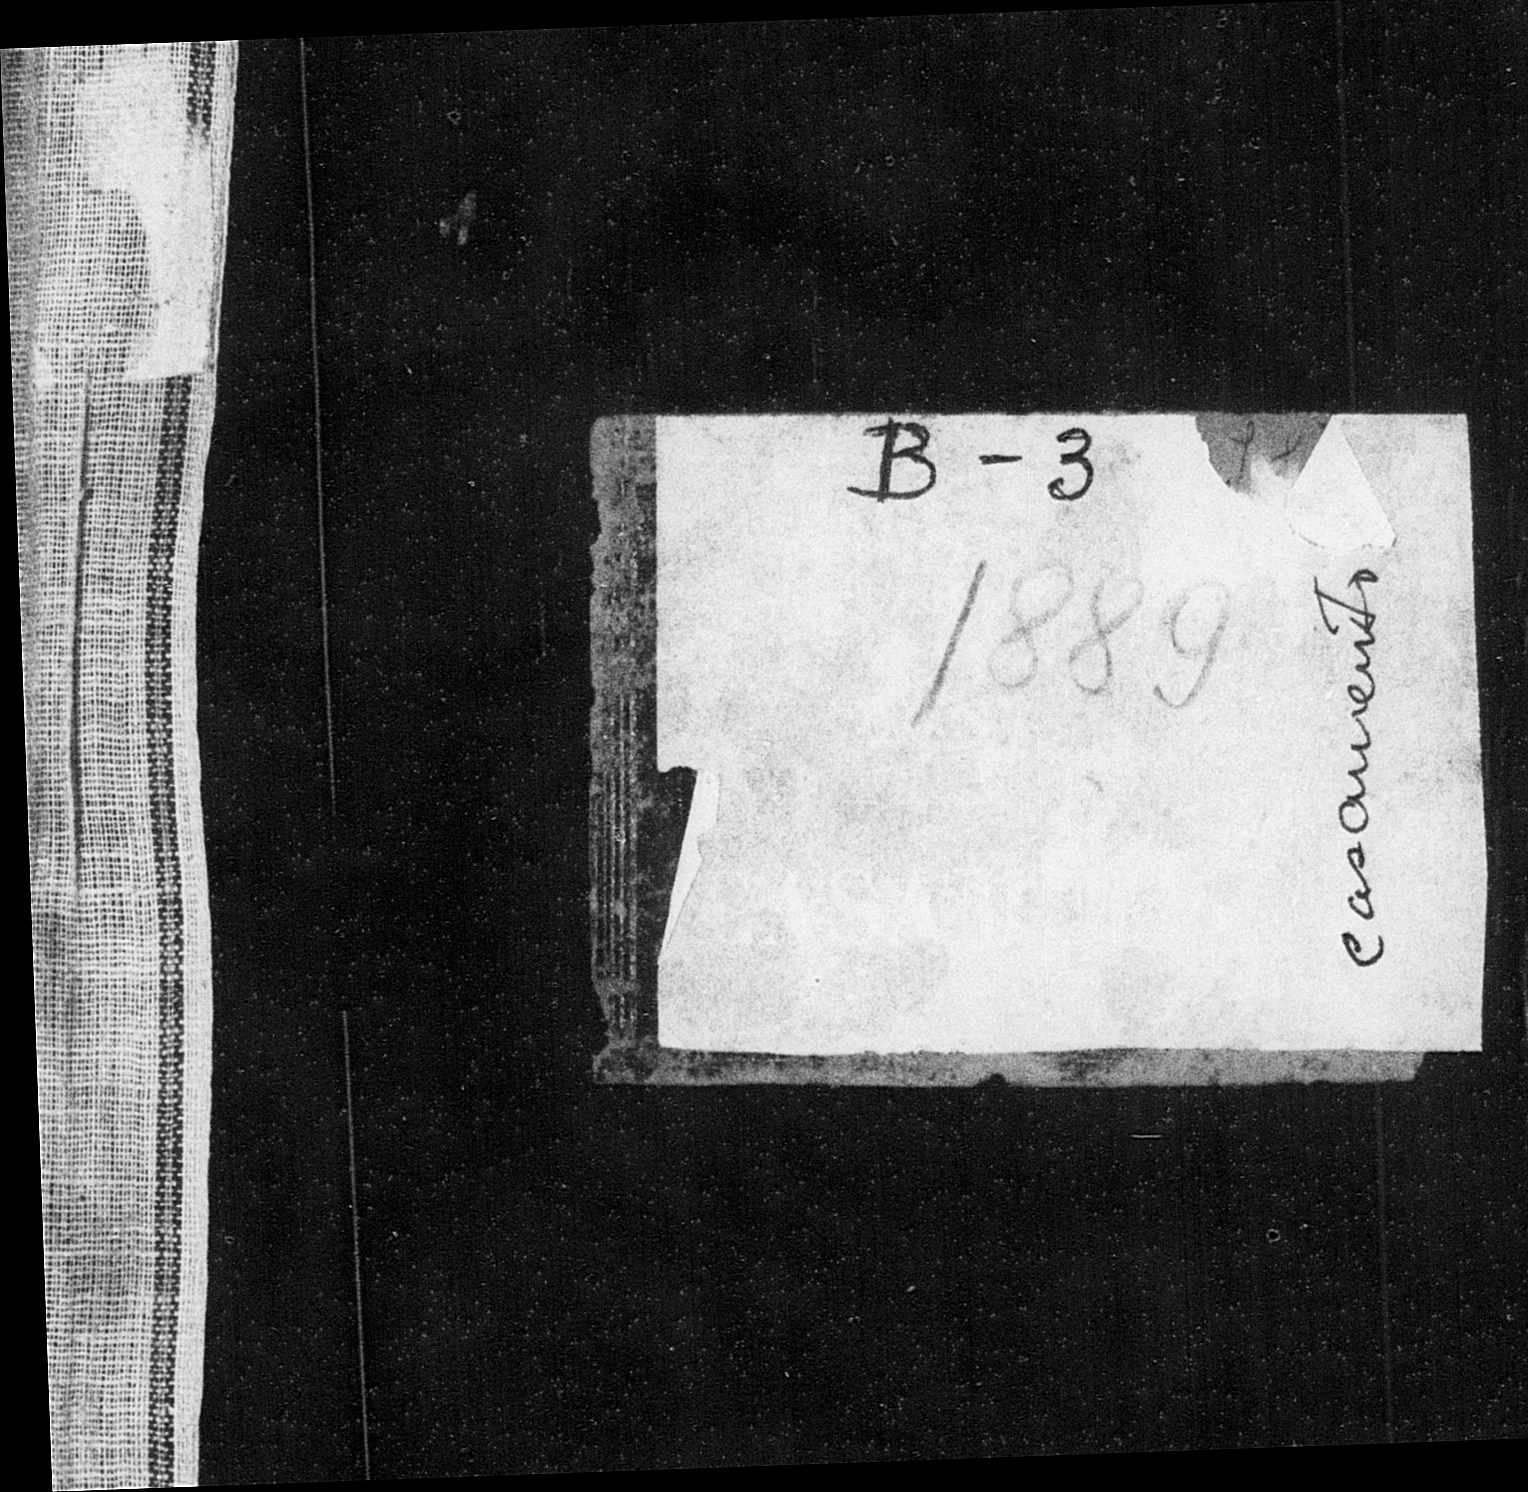 B - 3
1889
casamento